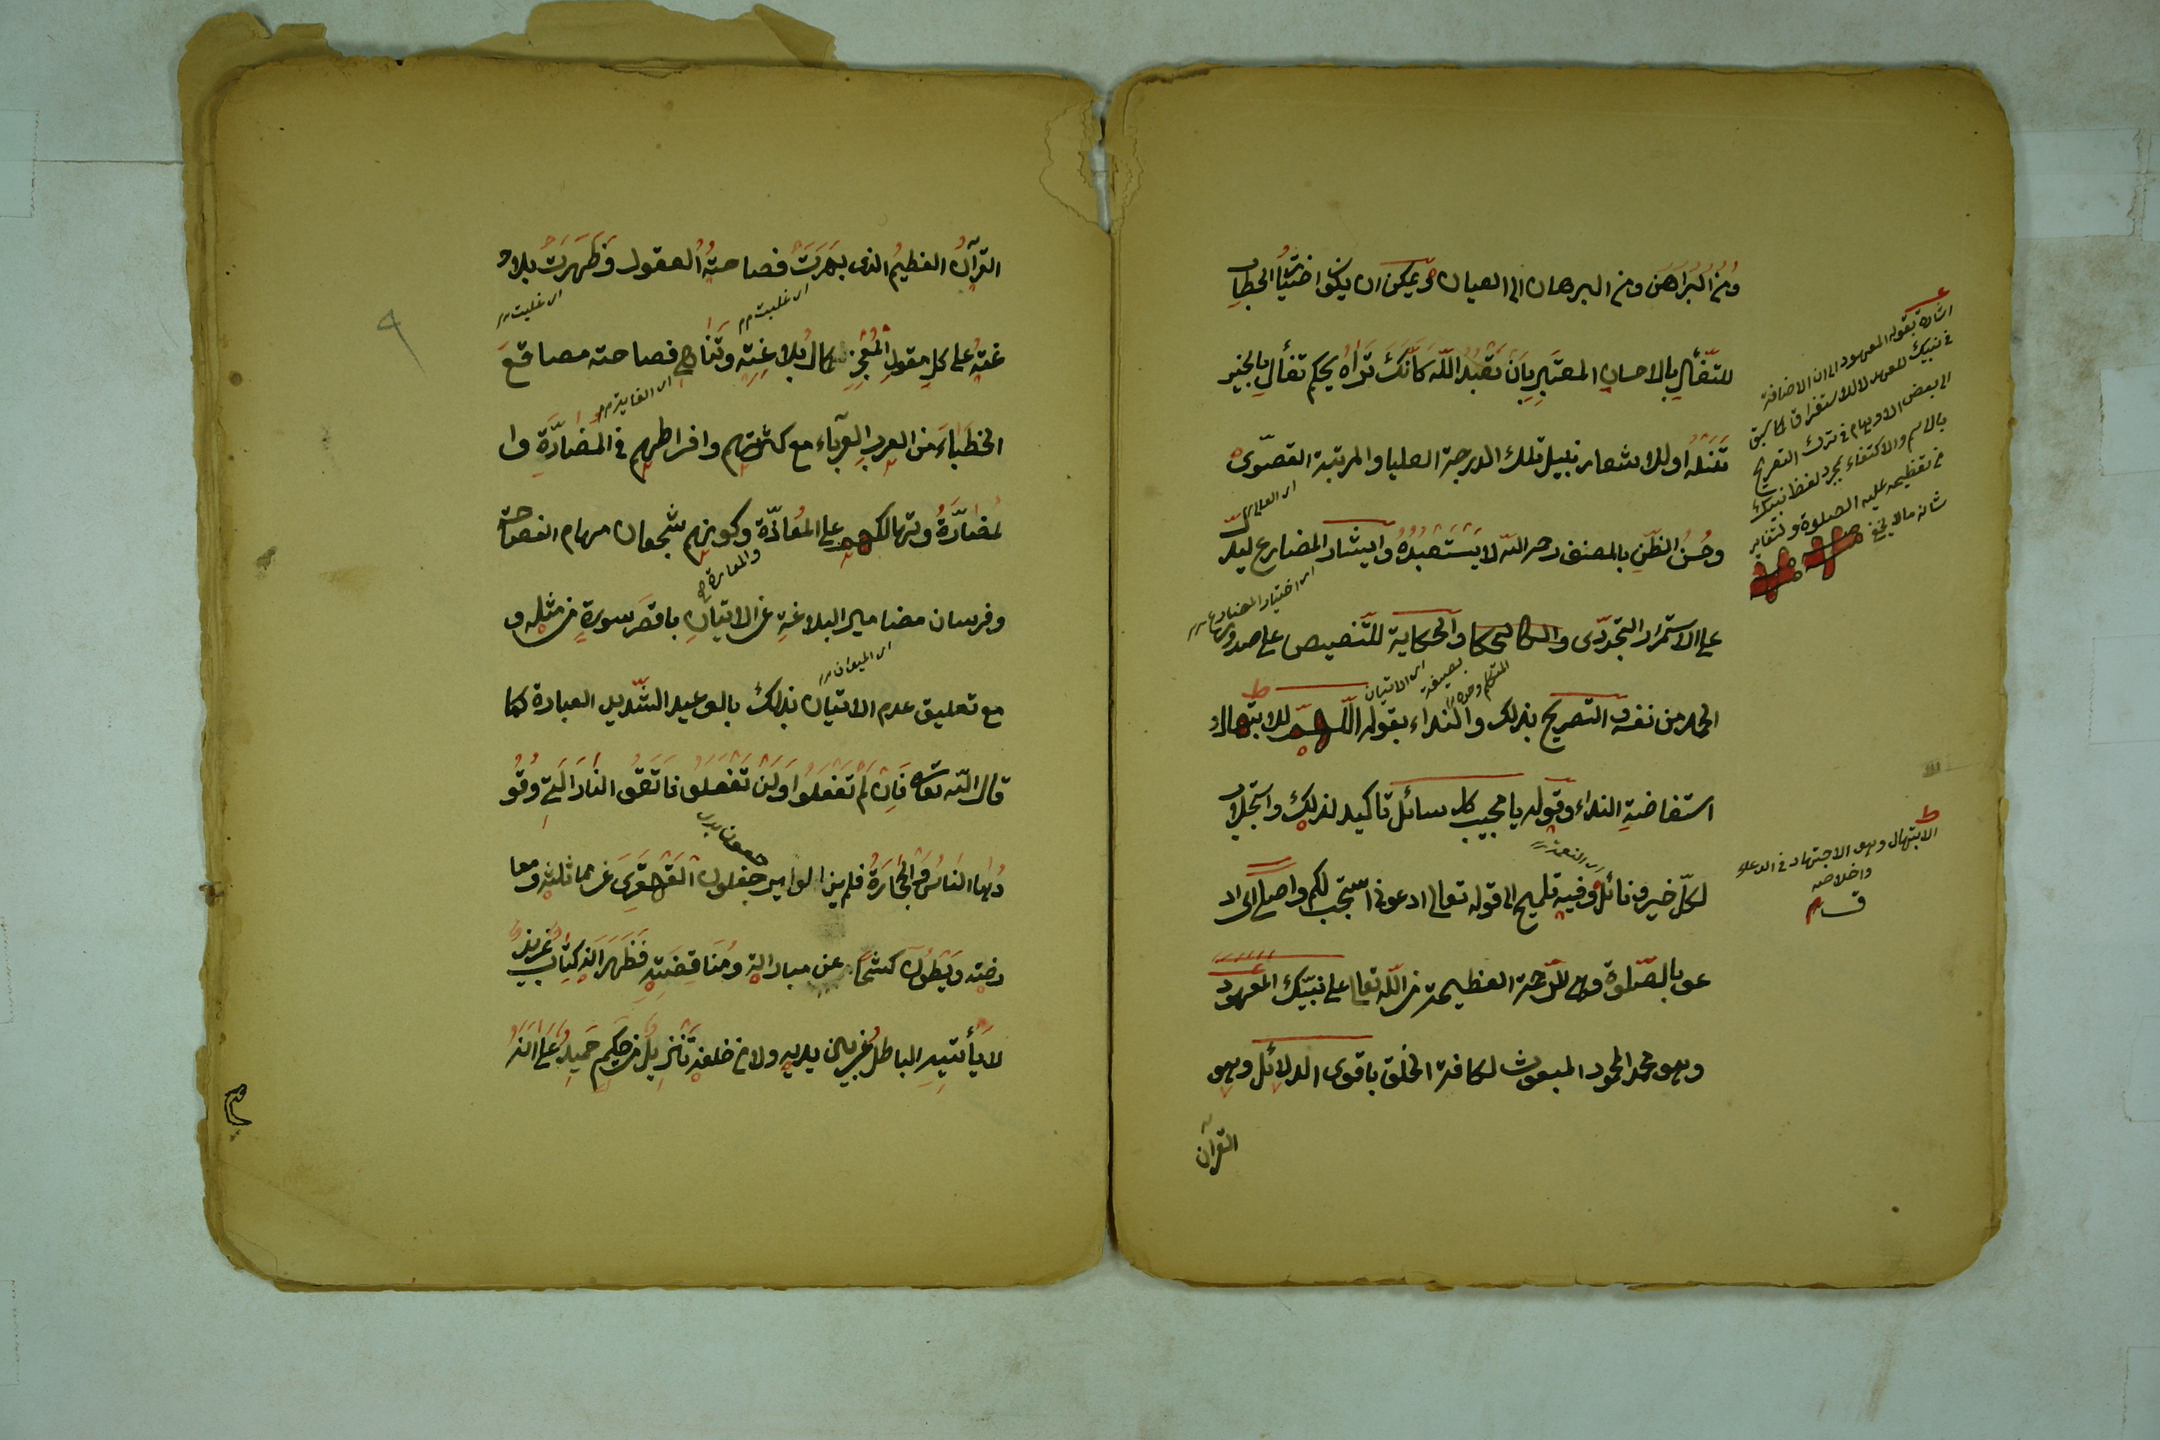 ومن البراهن ومن البرهان الى العيان ويمكن ان يكون اختيار الخطاب
للتفأل بالاحسان المعتبر بان تعبد الله كانك تراه بحكم تفأل بالخير
تنله او للاشعار نبيل تلك الدرجة العليا والمرتبة القصوى
وحسن الظن بالمصنف رحمه الله لا يستبعده وايثار المضارع ليدل
على الاستمرار التجددى والحكاية للتنصيص على صدور
الحمد من نفسه التصريح بذلك والنداء بقوله اللهم للابتهال و
استفاضة النداء وقوله يا مجيب كل سائل تاكيد لذلك واستجلاب
لكل خير ونائل وفيه تلميح الى قوله تعالى ادعونى استجب لكم واصلى اى اد
عو بالصلوة وهى الرحمة العظيمة من الله تعالى على نبيك المعهود
وهو محمد المحمود المبعوث لكافة الخلق باقوى الدلائل وهو
القرآن
اى العالى
اى اختيار المضارع
اى الاتيان بصيغة المتكلم وحده
اشارة بقوله المعهود الى ان الاضافة
فى نبيك للعهد لا للاستغراق كما سبق
الى بعض الاوهام فى ترك التصريح
بالاسم والاكتفاء بمجرد لفظ نبيك
فى تعظيمه عليه الصلوة و
شانه ما لا يخفى
ط
الابتهال وهو الاجتهاد فى الدعاء
واخلاصه
القرآن العظيم الذى بهرت فصاحته العقول وظهرت بلا
غته على كل مقول المعجز كمال بلاغته وتناهى فصاحته مصاقع
الخطباء من العرب العرباء مع كثرتهم وافراطهم فى المضادة وا
لمضارة وتهالكهم على المعازة وكونهم شجعان مهام الفصاحة
وفرسان مضامير البلاغة عن الاتيان باقصر سورة من مثله و
مع تعليق عدم الاتيان بذلك بالوعيد الشديد العبارة كما
قال الله تعالى فان لم تفعلوا ولن تفعلوا فاتقوا النار التى وقو
دها الناس والحجارة فلم يزالوا يرجفلون القهقرى عن مماثلته ومعا
رضته ويطوون كشحا عن مبارزته ومناقضته فظهر انه كتاب عزيز
لا يأتيه الباطل من بين يديه ولا من خلفه تنزيل من حكيم حميد على انه
اى غلبت
اى غلبت
اى الغاية
والمعارة
اى الميعاد